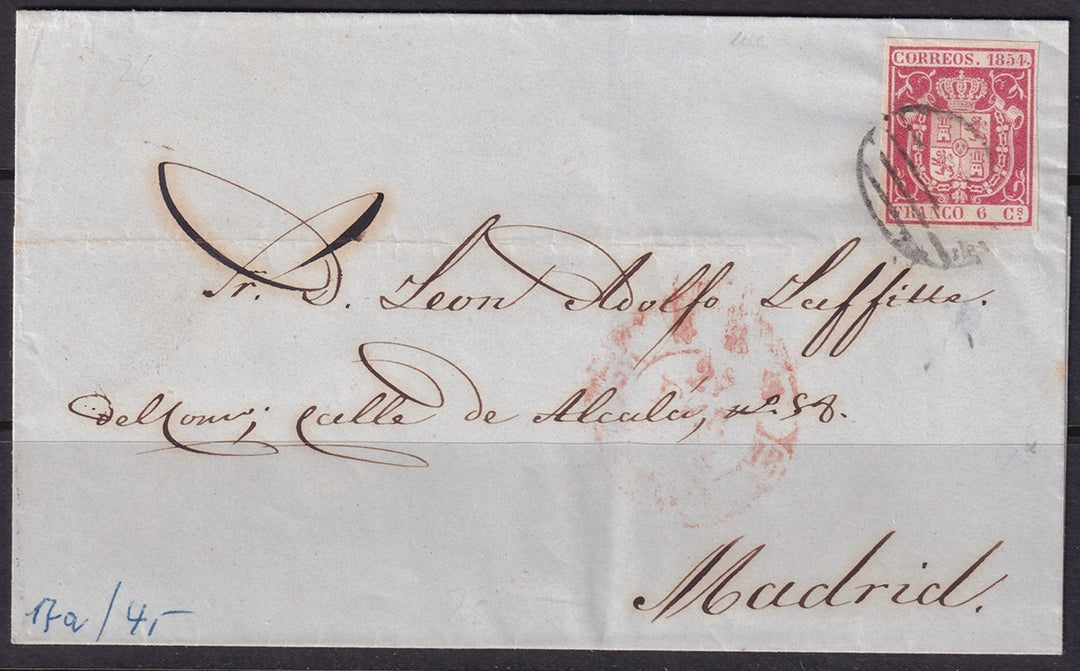 CORREOS. 1854.
FRANCO 6 Cs
Sr. D. Leon Adolfo Laffitte.
del Como; calle de Alcalá, no. 58.
Madrid.
17a / 4,-
26